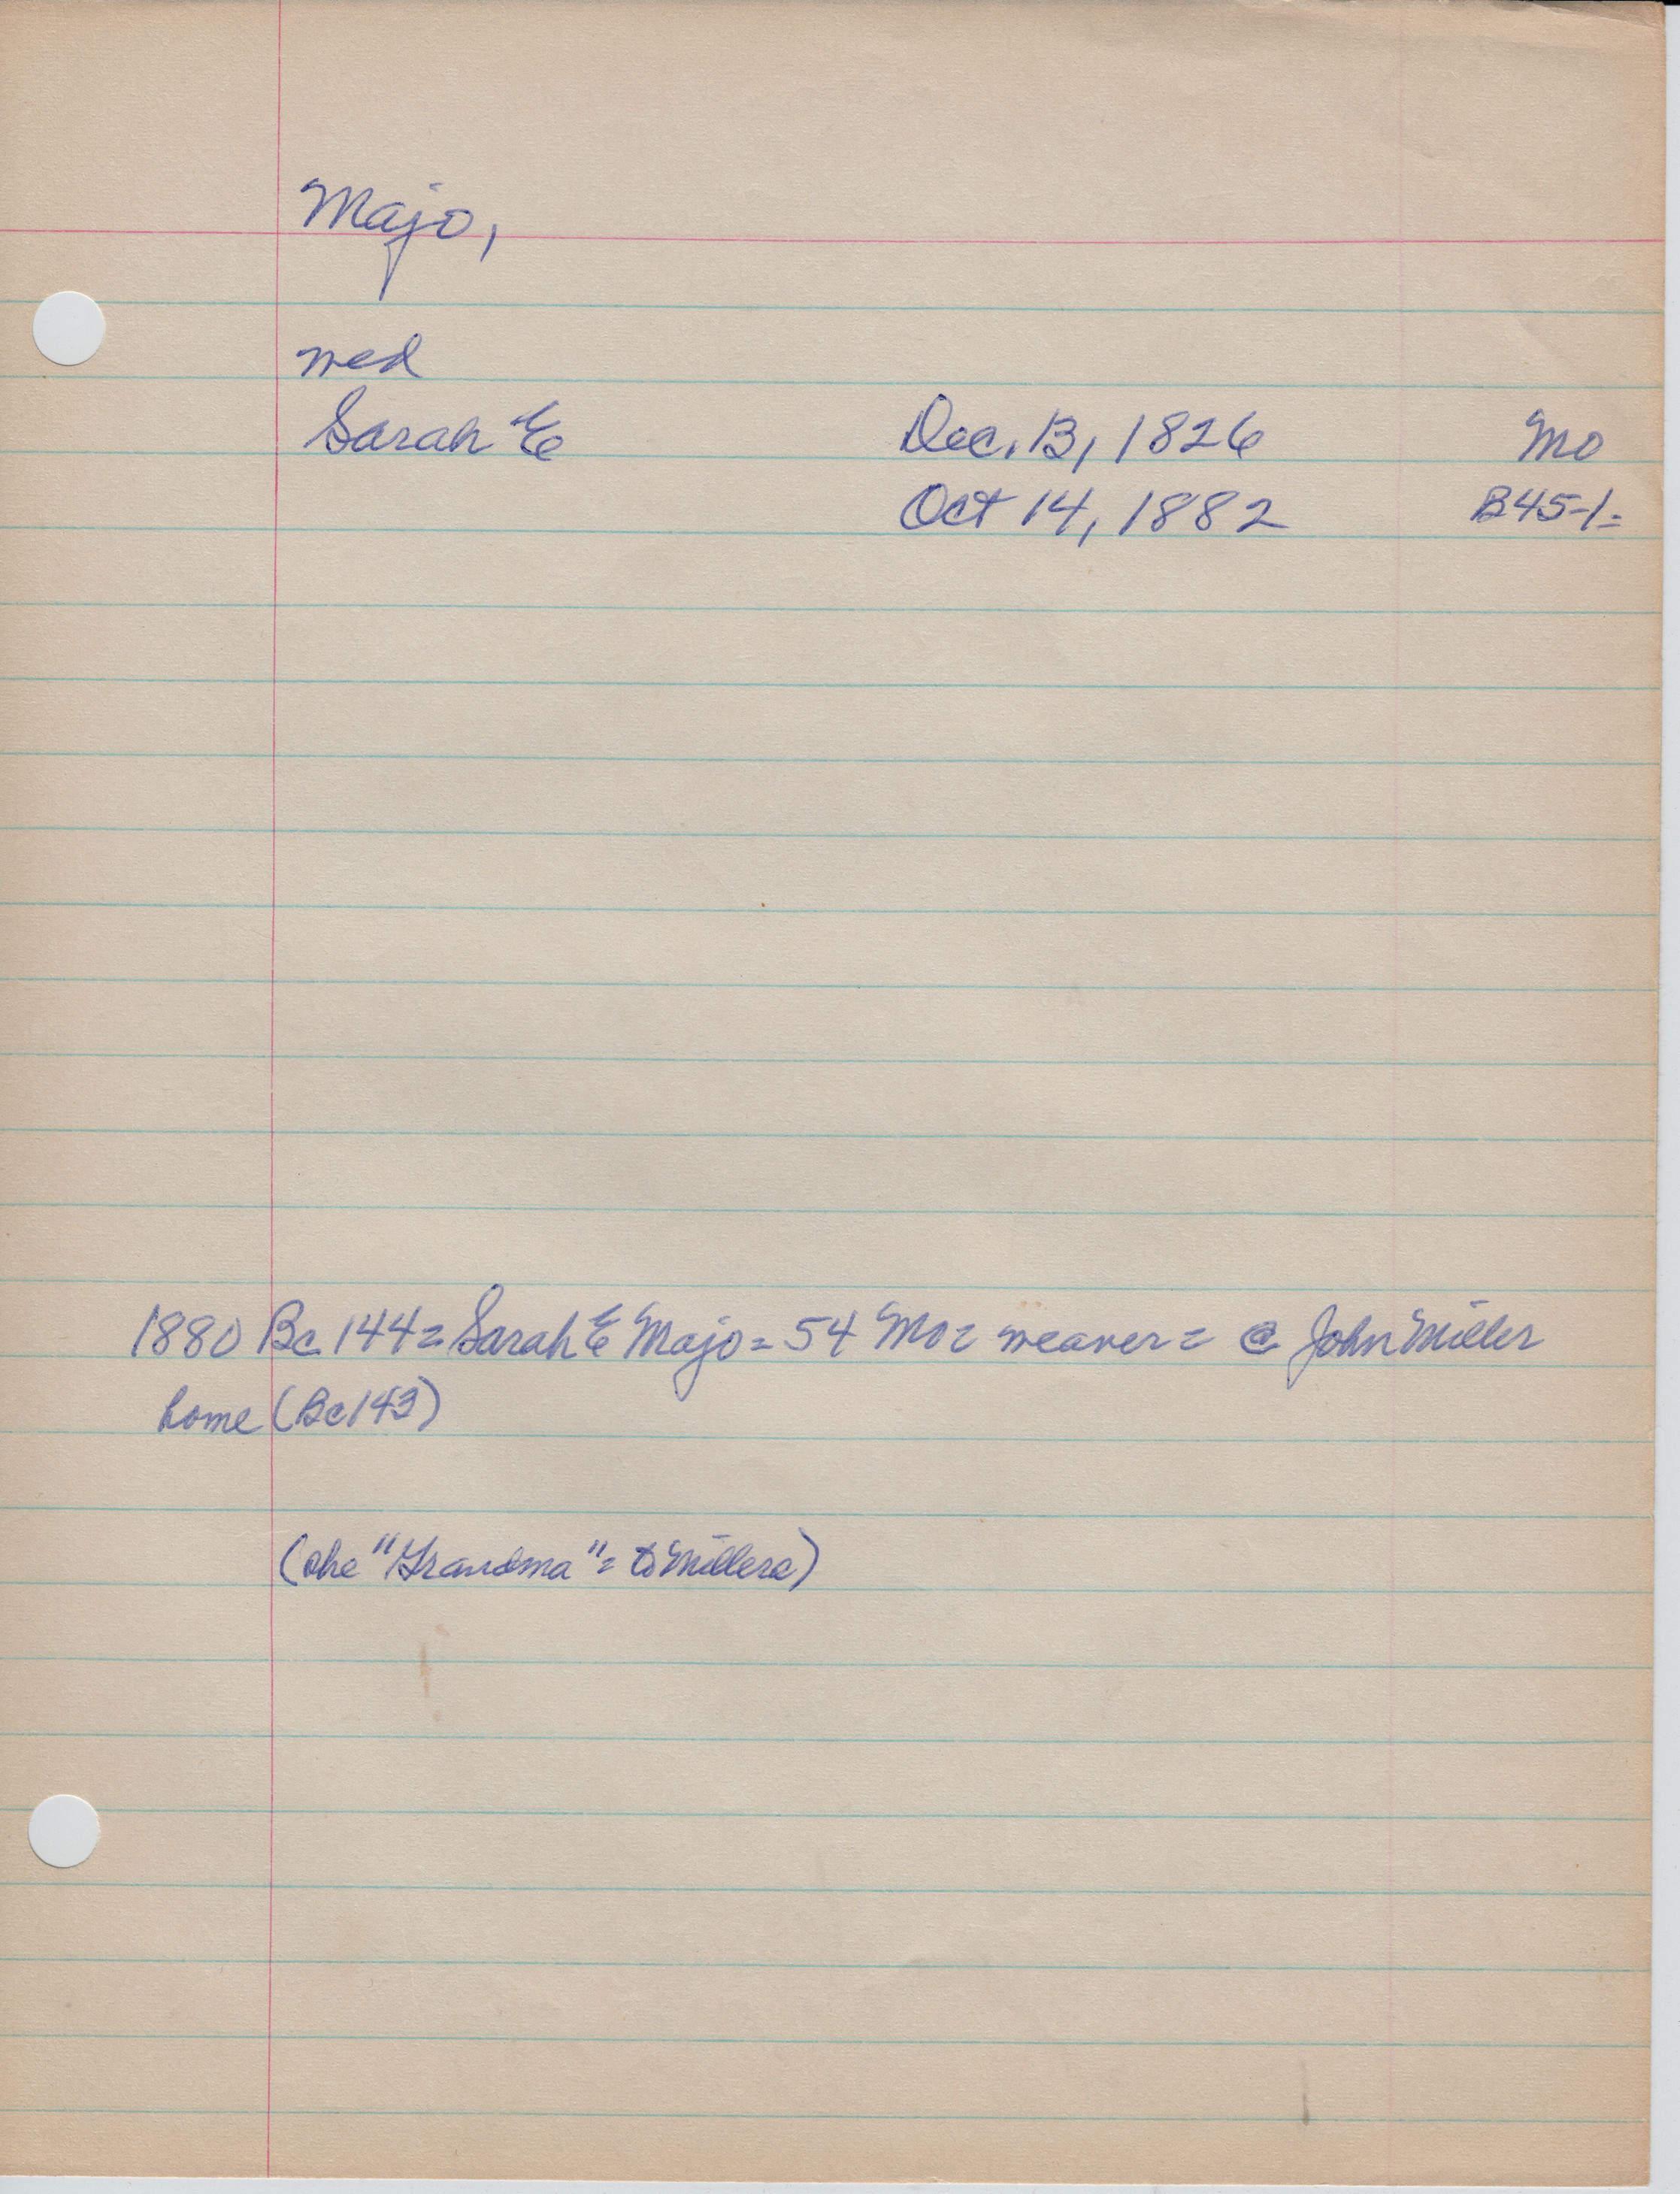 Majo,
wed
Sarah E Dec. 13, 1826 Mo
Oct 14, 1882 B45-1=
1880 Bc 144= Sarah E Majo= 54 Mo= weaver= @ John Miller
home (Bc 143)
(she "Grandma"= to Millers)